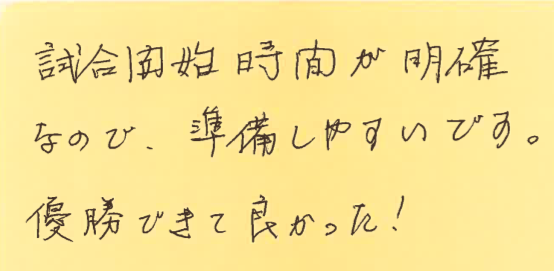 試合開始時間が明確
なので、準備しやすいです。
優勝できて良かった！